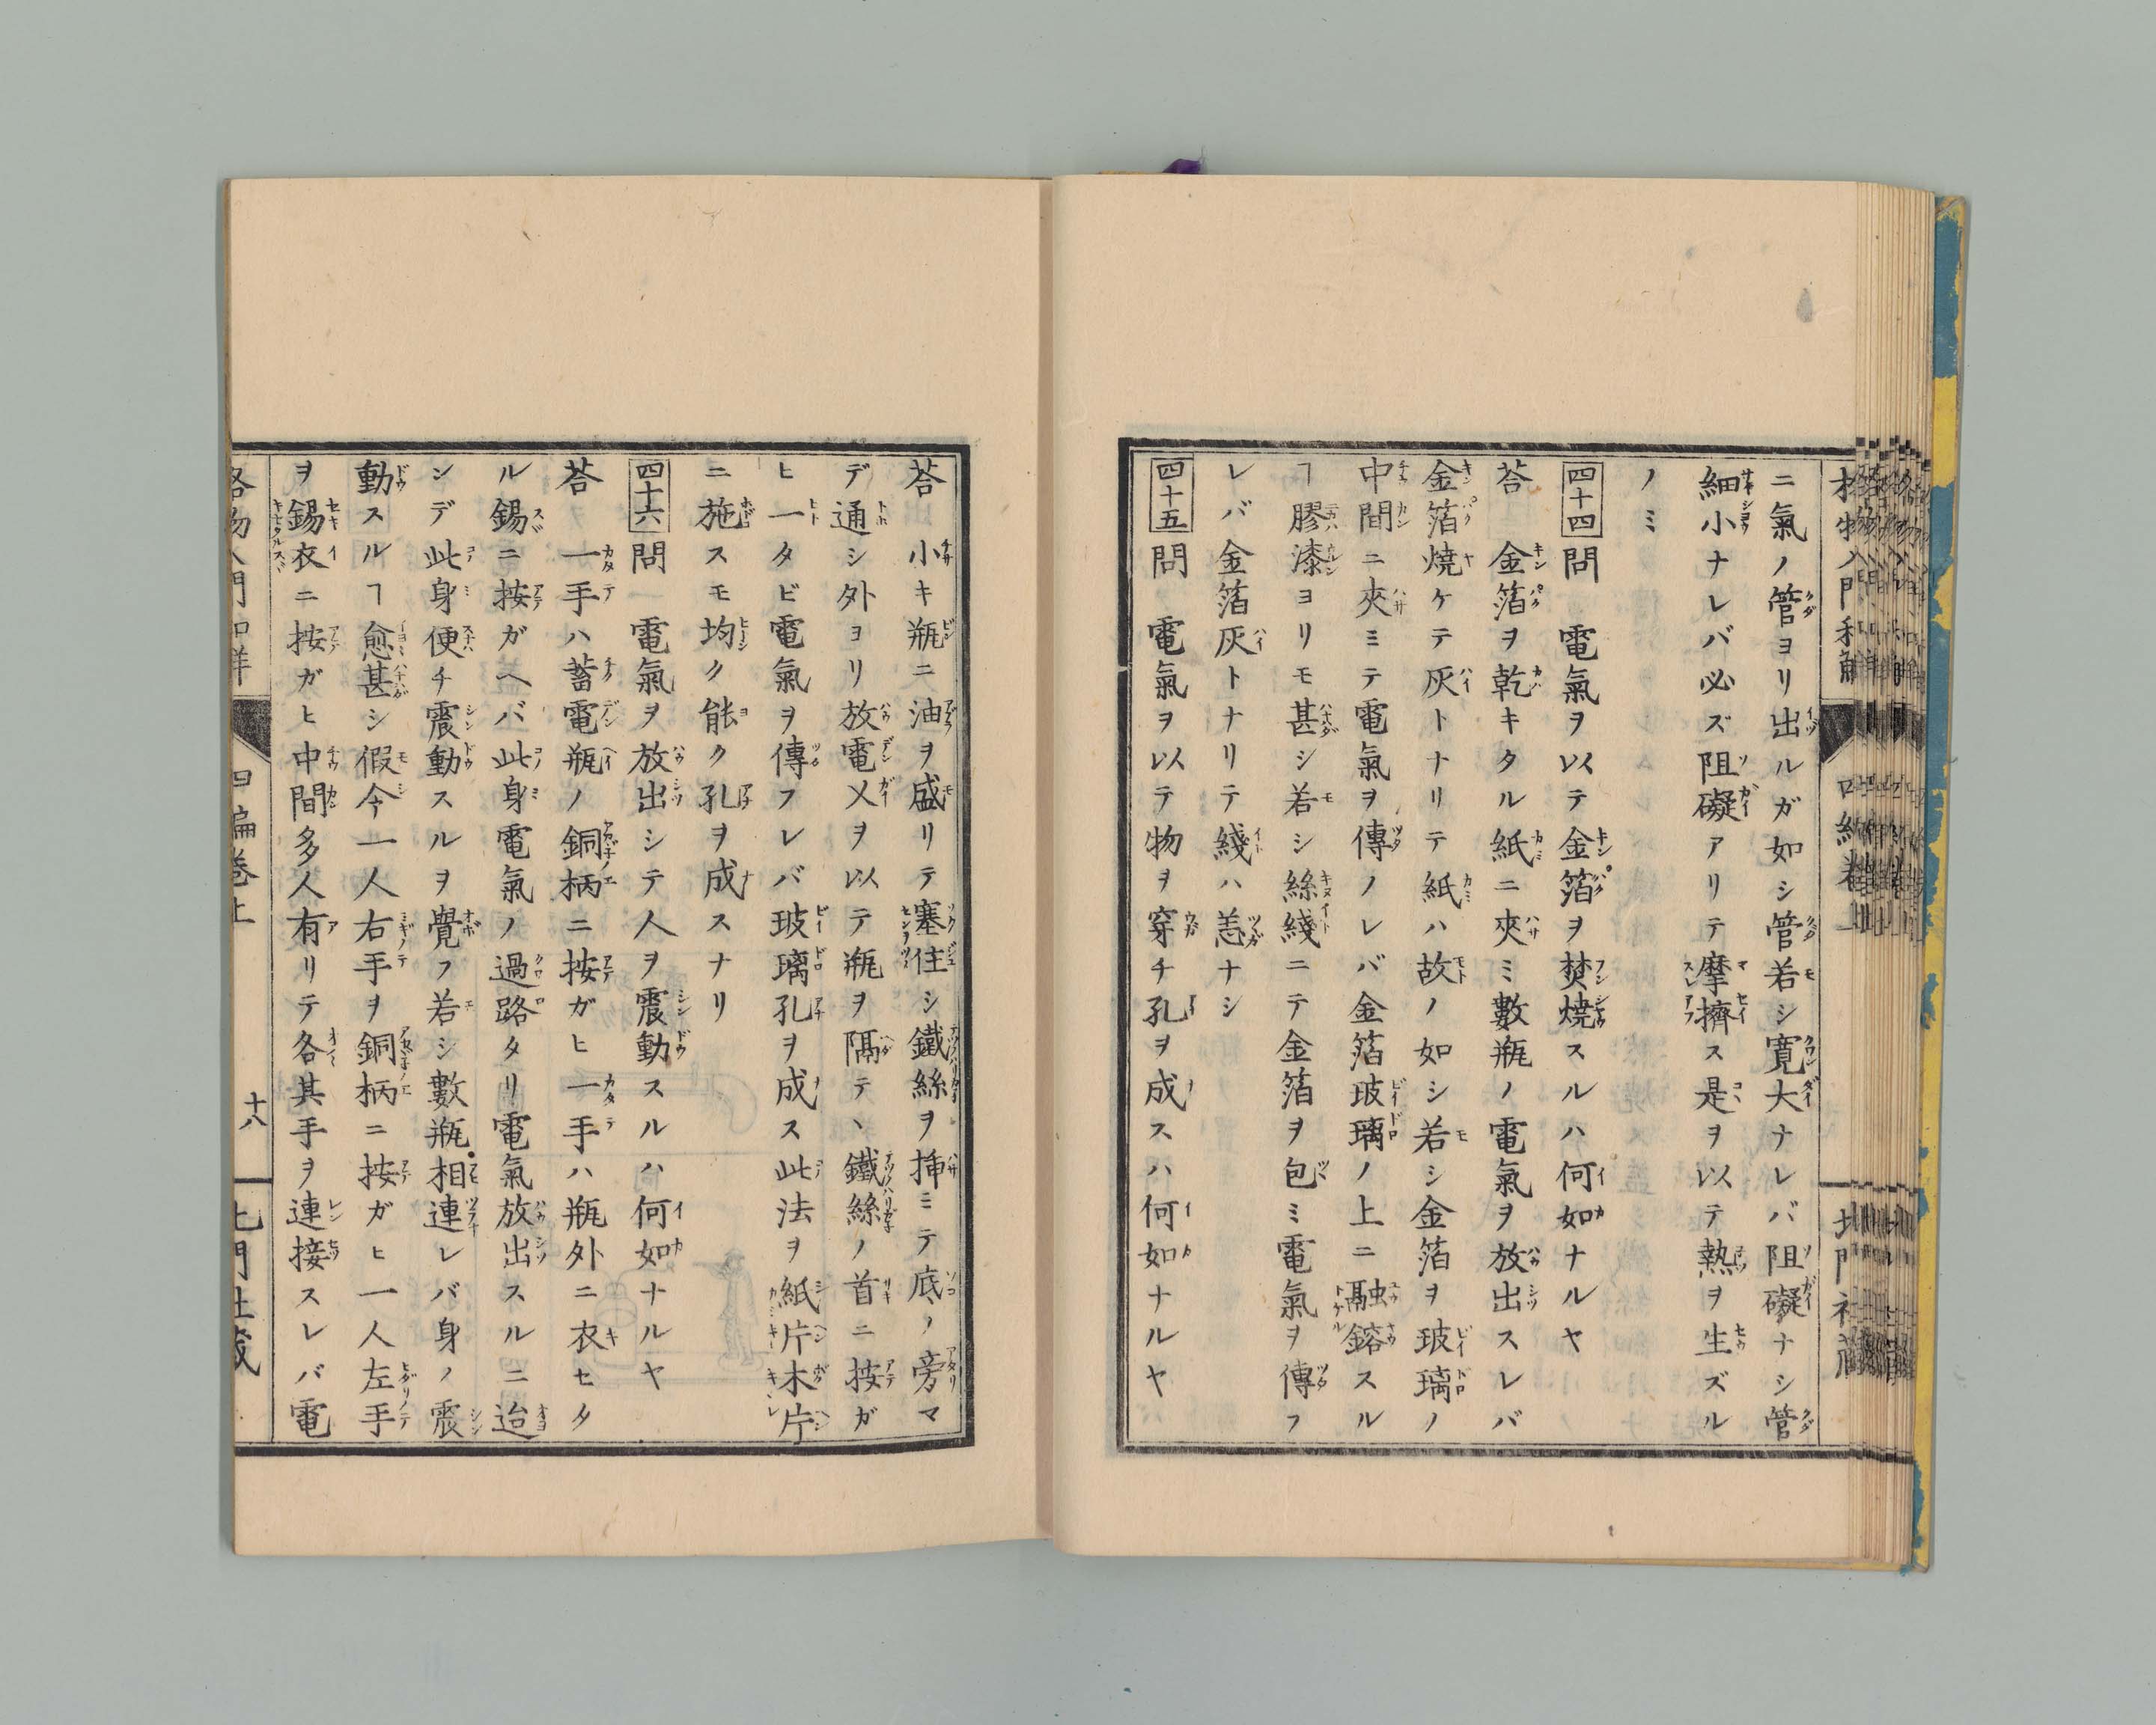 ニ氣ノ管ヨリ出ルガ如シ管若シ寬大ナレバ阻礙ナシ管
細小ナレバ必ズ阻礙アリテ摩擠ス是ヲ以テ熱ヲ生ズル
ノミ
四十四問　電氣ヲ以テ金箔ヲ焚燒スルハ何如ナルヤ
荅　金箔ヲ乾キタル紙ニ夾ミ數瓶ノ電氣ヲ放出スレバ
金箔燒ケテ灰トナリテ紙ハ故ノ如シ若シ金箔ヲ玻璃ノ
中間ニ夾ミテ電氣ヲ傳ノレバ金箔玻璃ノ上ニ融鎔スル
ヿ膠漆ヨリモ甚シ若シ絲綫ニテ金箔ヲ包ミ電氣ヲ傳フ
レバ金箔灰トナリテ綫ハ恙ナシ
四十五問　電氣ヲ以テ物ヲ穿チ孔ヲ成スハ何如ナルヤ
荅　小キ瓶ニ油ヲ盛リテ塞住シ鐵絲ヲ挿ミテ底ノ旁マ
デ通シ外ヨリ放電乂ヲ以テ瓶ヲ隔テヽ鐵絲ノ首ニ按ガ
ヒ一タビ電氣ヲ傳フレバ玻璃孔ヲ成ス此法ヲ紙片木片
ニ施スモ均ク能ク孔ヲ成スナリ
四十六問　電氣ヲ放出シテ人ヲ震動スルハ何如ナルヤ
荅　一手ハ蓄電瓶ノ銅柄ニ按ガヒ一手ハ瓶外ニ衣セタ
ル錫ニ按ガヘバ此身電氣ノ過路タリ電氣放出スルニ迨
ンデ此身便チ震動スルヲ覺フ若シ數瓶相連レバ身ノ震
動スルヿ愈甚シ假令一人右手ヲ銅柄ニ按ガヒ一人左手
ヲ錫衣ニ按ガヒ中間多人有リテ各其手ヲ連接スレバ電
四編卷上　十八　北門社藏